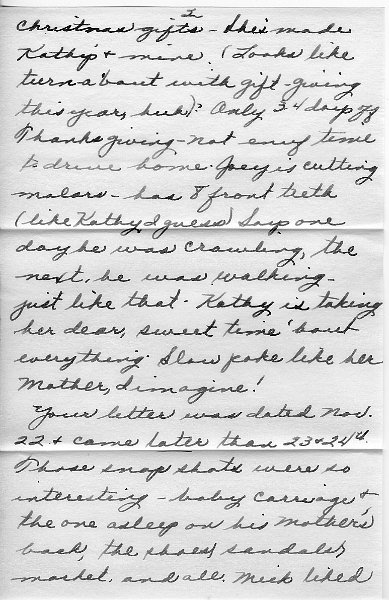 2
Christmas gifts - She's made
Kathy's & mine. (Looks like
turn a'bout with gift-giving
this year, huh)? Only 3-4 days off
Thanksgiving - not enuf time
to drive home. Joey is cutting
molars - has 8 front teeth
(like Kathy I guess) Says one
day he was crawling, the
next, he was walking -
just like that. Kathy is taking
her dear, sweet time 'bout
everything. Slow poke like her
Mother, I imagine!
Your letter was dated Nov.
22 & came later than 23 & 24th.
Those snap shots were so
interesting - baby carriage &
the one asleep on his Mother's
back, the shoes, sandals,
market, and all. Mick liked